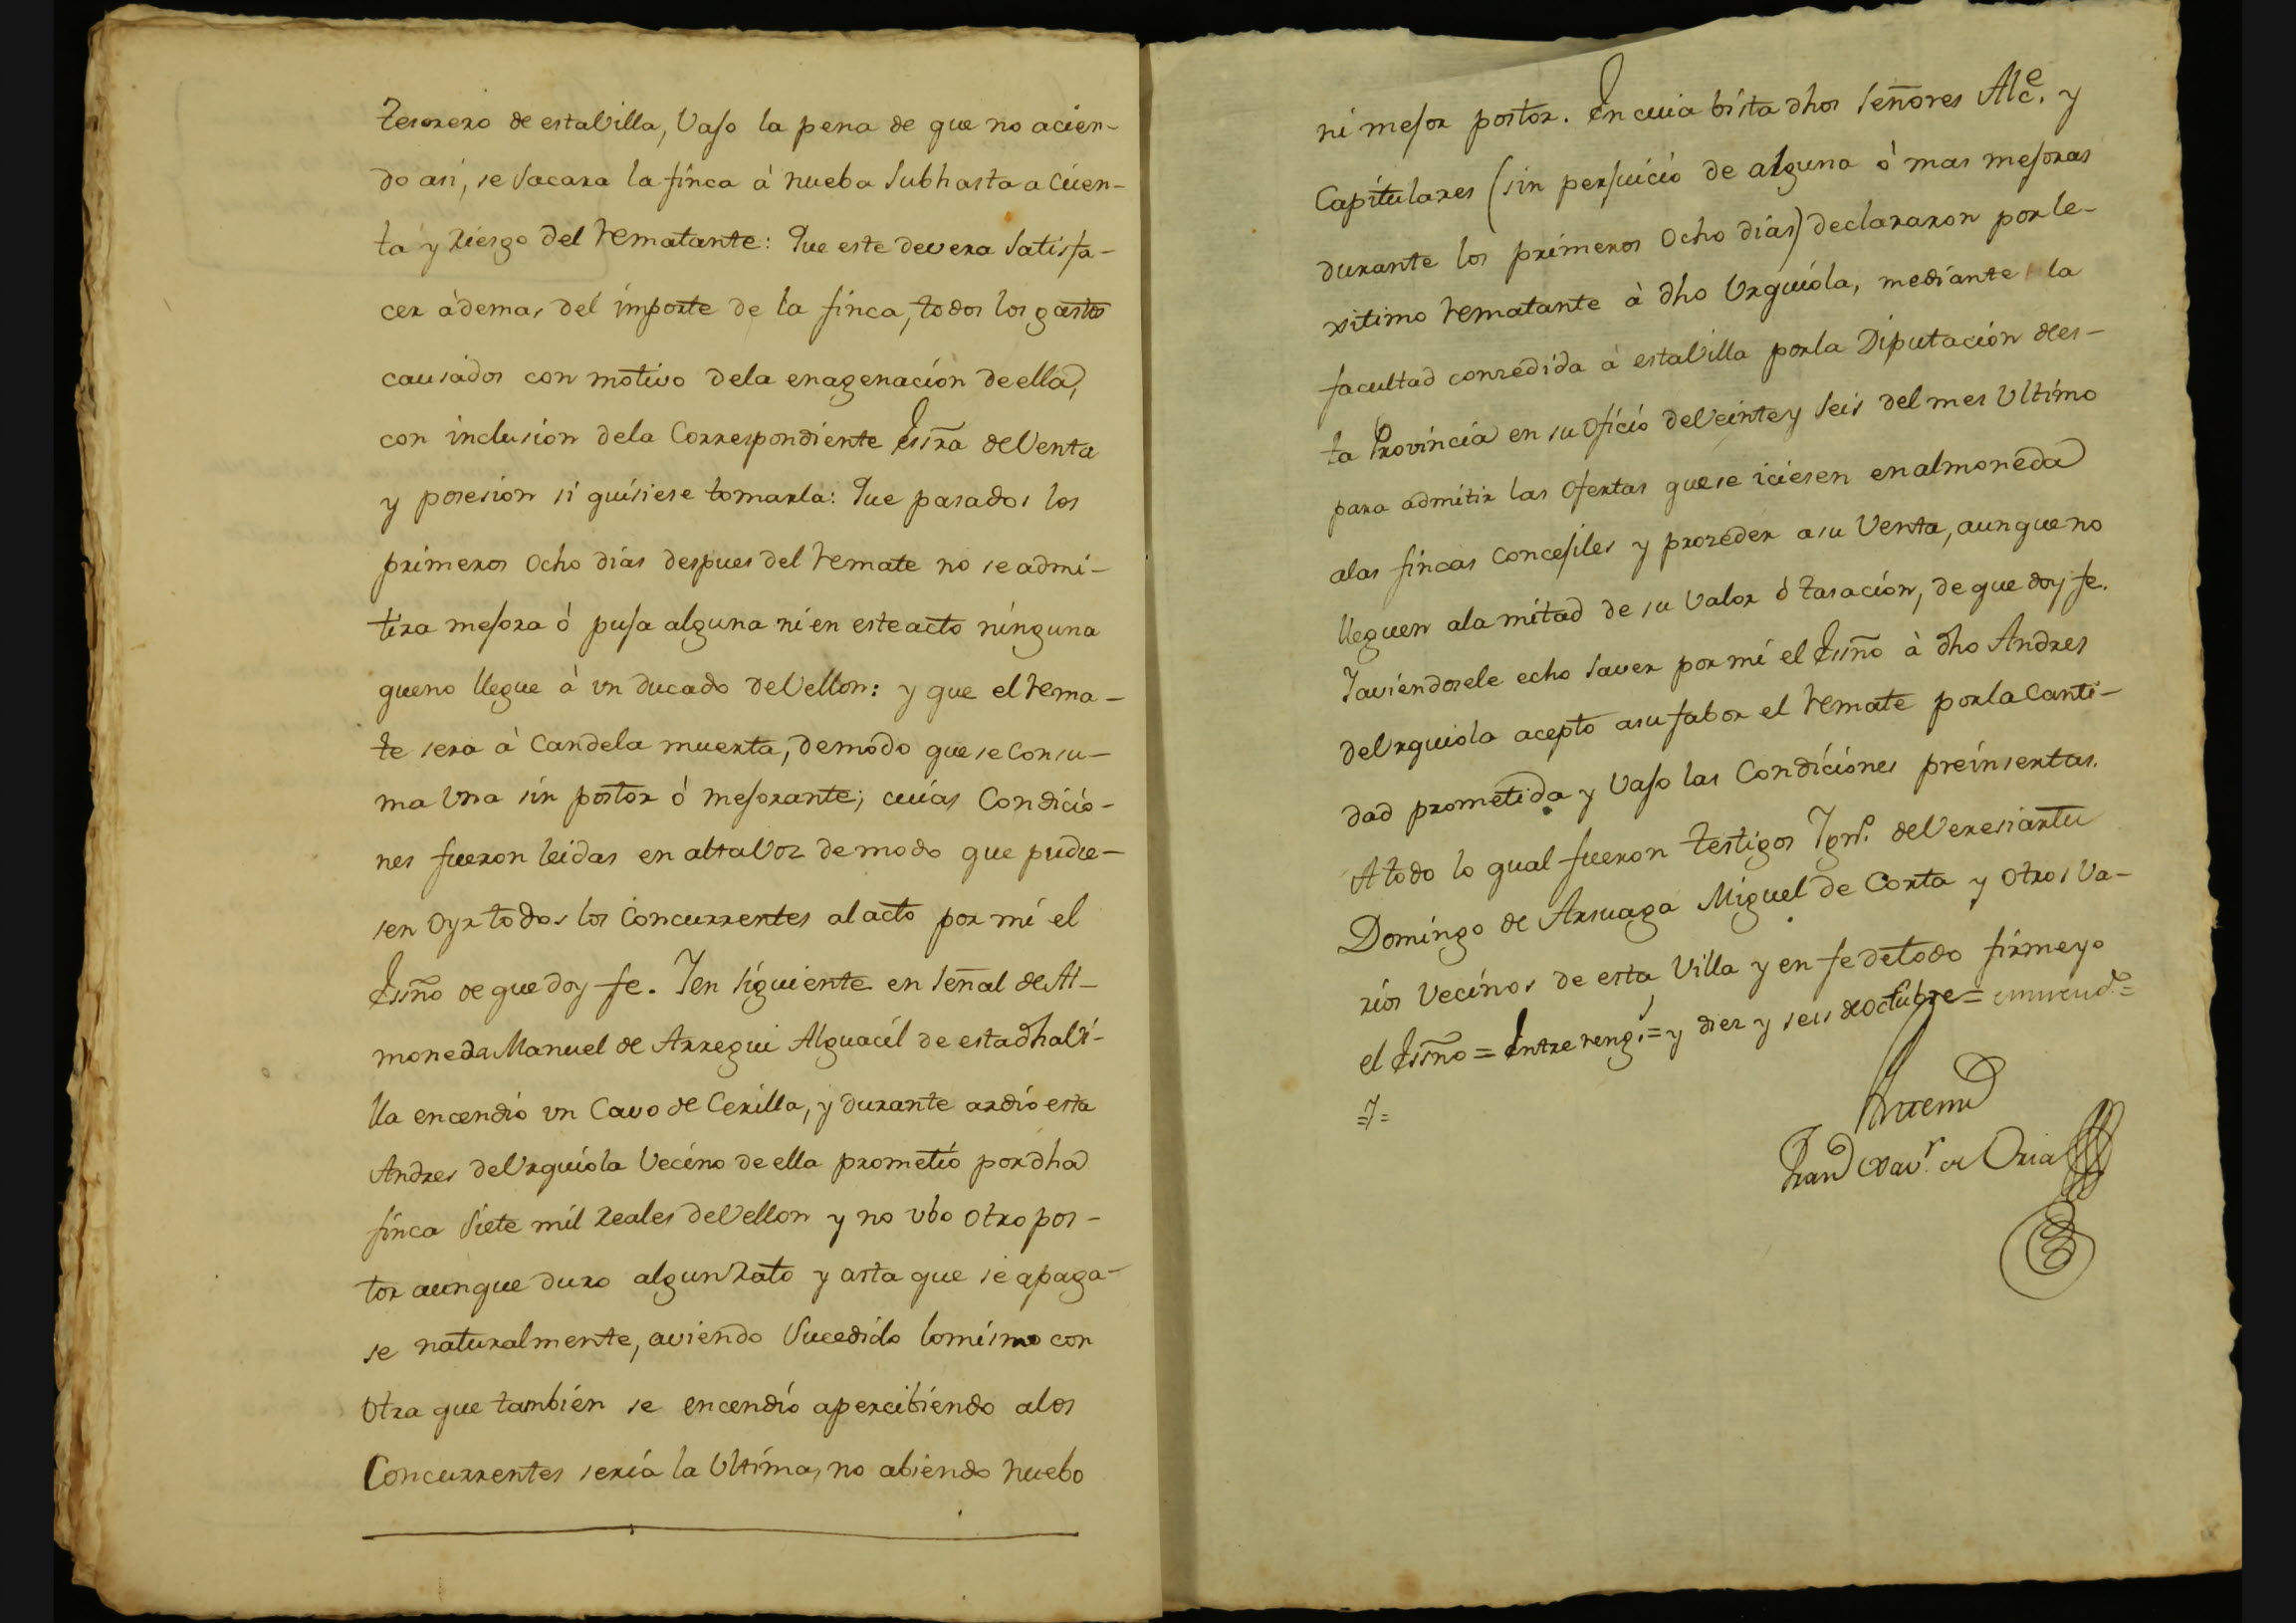 Tesorero de esta Villa, vajo la pena de que no acien-
do asi, se sacara la finca à nueba subhasta a cuen-
ta y riesgo del rematante: Que este devera satisfa-
cer àdemas del importe de la finca, todos los gastos
causados con motivo dela enagenacion de ella,
con inclusion dela Correspondiente Essra de Venta
y posesion si quisiese tomarla: Que pasados los
primeros ocho dias despues del remate no se admi-
tira mejora ò puja alguna ni en este acto ninguna
que no llegue à vn ducado de Vellon: y que el rema-
te sera à Candela muerta, de modo que se consu-
ma una sin postor ò mejorante; cuias Condicio-
nes fueron leidas en alta voz de modo que pudie-
sen oyr todos los Concurrentes al acto por mi el
Essño de que doy fe. Y en siguiente en señal de Al-
moneda Manuel de Arregui Alguacil de esta dha Vi-
lla encendio vn Cavo de Cerilla, y durante ardio esta
Andres de Urquiola Vecino de ella prometio por dha
finca siete mil reales de Vellon y no vbo otro pos-
tor aunque duro algun rato y asta que se apaga-
se naturalmente, aviendo sucedido lo mismo con
otra que tambien se encendio apercibiendo alos
Concurrentes seria la ultima, no abiendo nuebo
ni mejor postor. En cuia bista dhos Señores Alce. y
Capitulares (sin perjuicio de alguna ò mas mejoras
durante los primeros ocho dias) declararon por le-
xitimo rematante à dho Urquiola, mediante la
facultad concedida à esta Villa por la Diputacion de es-
ta Provincia en su oficio de Veinte y seis del mes ultimo
para admitir las ofertas que se iciesen en almoneda
alas fincas concejiles y proceder a su Venta, aunque no
lleguen ala mitad de su valor ò tasacion, de que doy fe.
Y aviendosele echo saver por mi el Essño à dho Andres
de Urquiola acepto asu fabor el remate por la canti-
dad prometida y vajo las Condiciones preinsertas.
A todo lo qual fueron testigos Ygno. de Veresiartu
Domingo de Arsuaga Miguel de Corta y otros va-
rios Vecinos de esta Villa y en fe de todo firme yo
el Essño = Entre reng.s = y diez y seis de octubre = enmend.do =
=Y=
Ante mi
Franco Xavr. de Oria